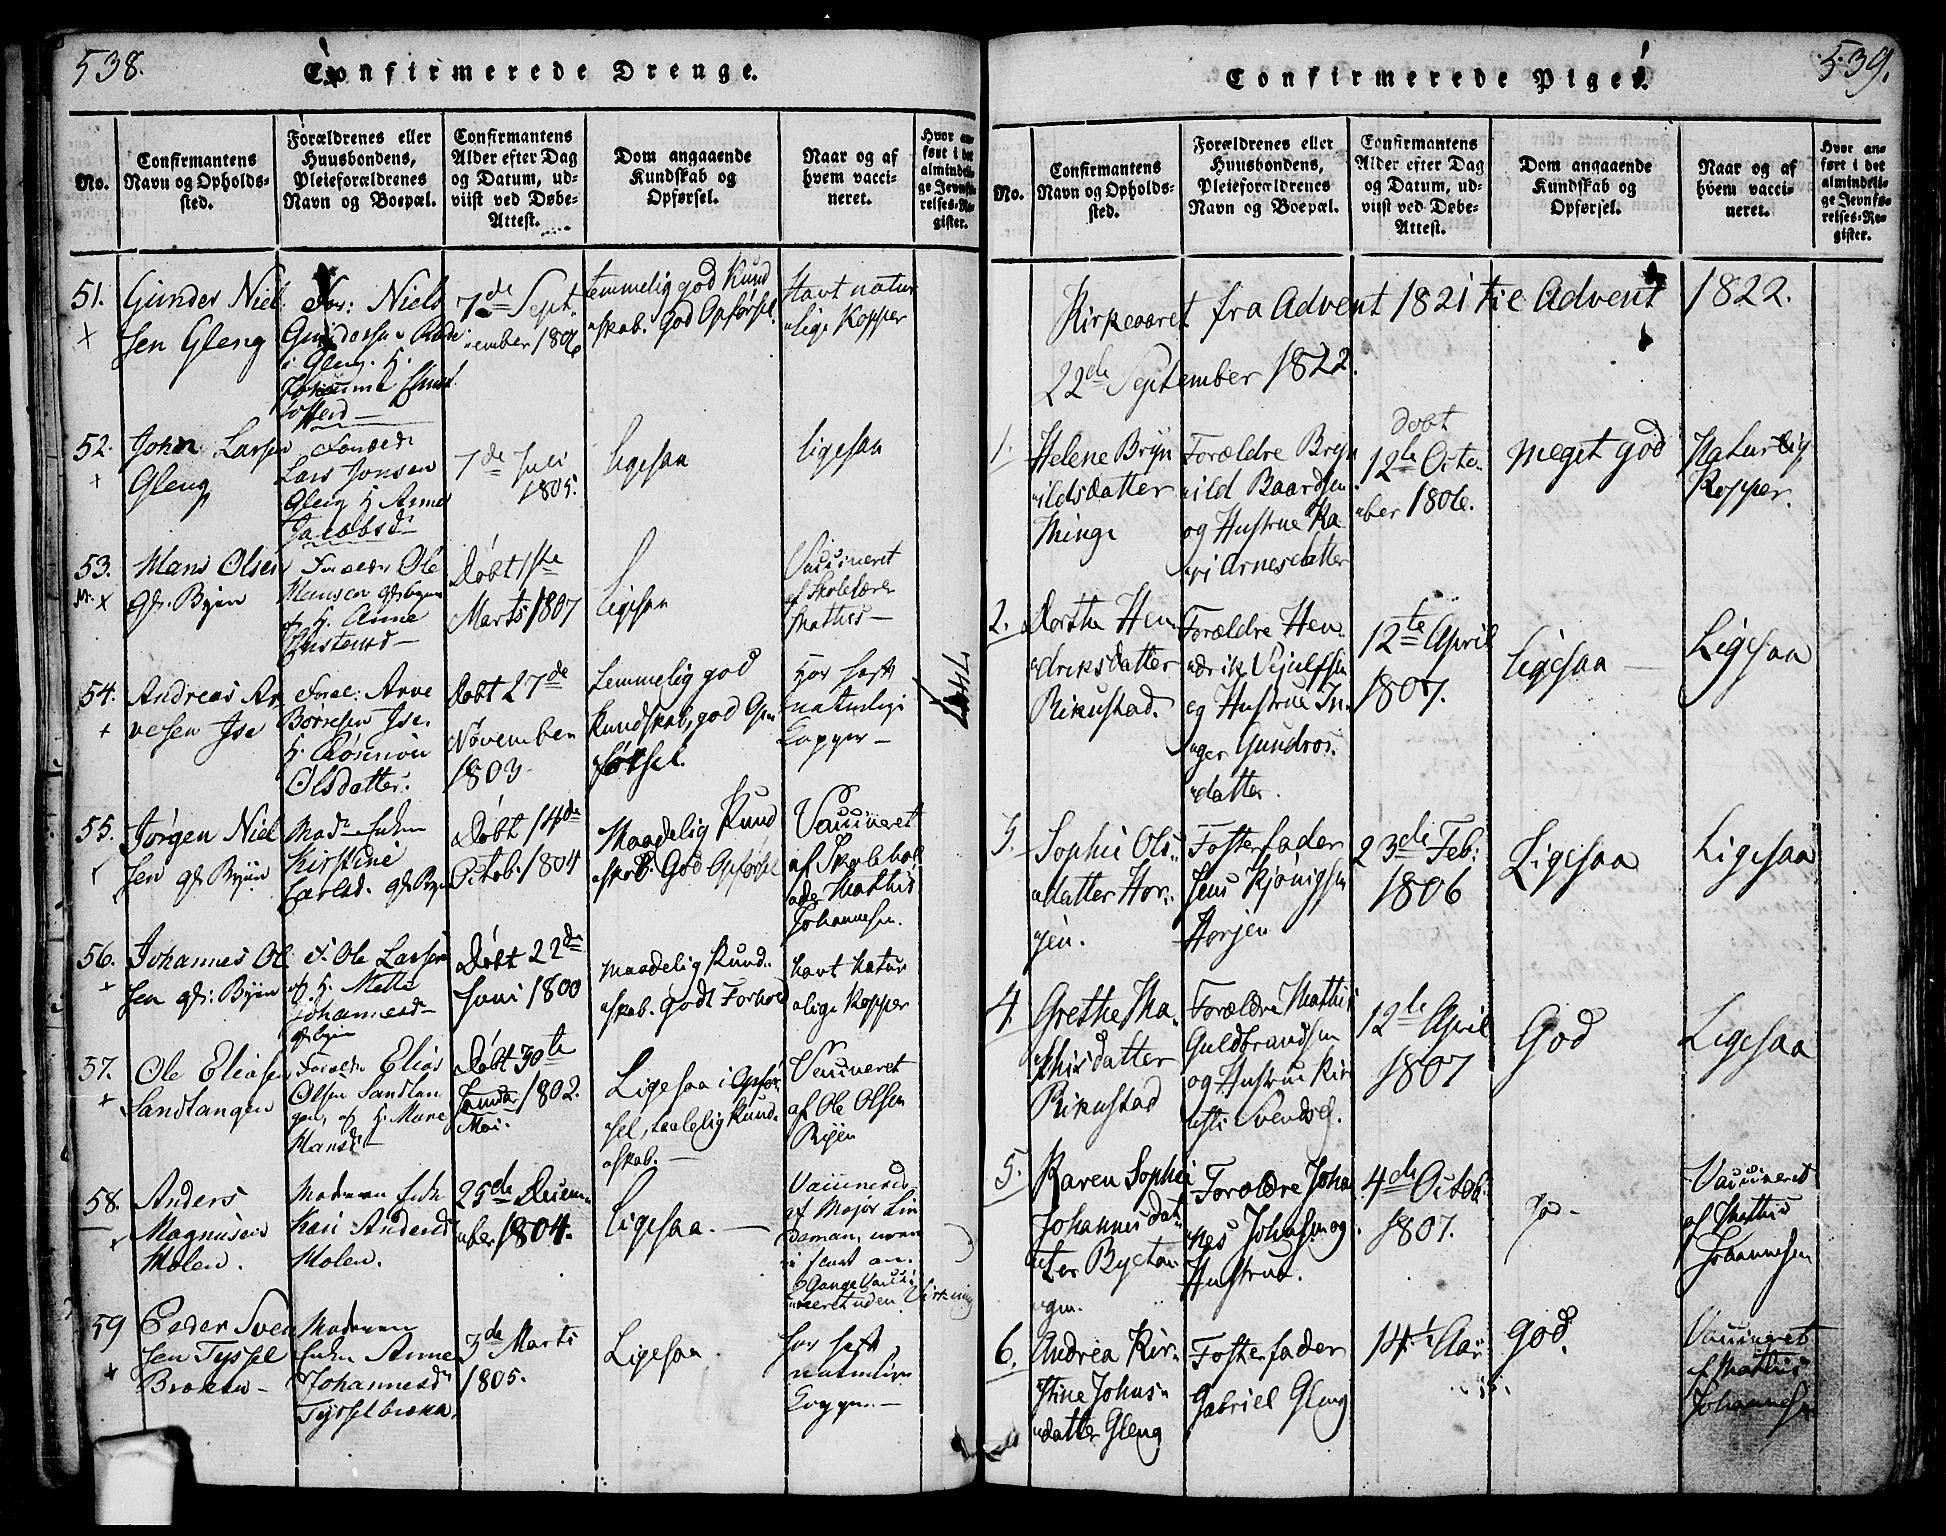 538.
Confirmerede Drenge.
No.
Confirmantens
Navn og Opholds-
sted.
Forældrenes eller
Huusbondens,
Pleieforældrenes
Navn og Boepæl.
Confirmantens
Alder efter Dag
og Datum, ud-
viist ved Døbe-
Attest.
Dom angaaende
Kundskab og
Opførsel.
Naar og af
hvem vacci-
neret.
Hvor an-
ført i det
almindeli-
ge Jevnfø-
relses-Re-
gister.
51.
Gunder Niel
sen Gleng
For: Niels
i Gleng. H.
7de Sept-
ember 1806
temmelig god Kund
skab. God Opførsel.
Havt natur
lige Kopper
52.
John Larsen
Gleng
Lars Jonsen
Gleng H. Anne
Jacobsd
7de Juli
1805.
ligesaa
ligesaa
53.
Hans Olsen
Byen
Ole
Hansen
H. Anne
Døbt 1ste
Marts 1807
Ligesaa
Vaccineret
af Skolelærer
Mathis
54.
Andreas Ar
vesen Ise
Foræl: Arve
Børresen Ise
H.
Olsdatter.
Døbt 27de
November
1803
Temmelig god
Kundskab, god Op
førsel.
Har haft
naturlige
Kopper
55.
Jørgen Niel
sen Byen
Kirstine
Døbt 14de
Octob. 1804
Maadelig Kund
skab. God Opførsel
Vaccineret
af Skolehol
der Mathis
Johannesen.
56.
Johannes Ol
sen Byen
F. Ole Larsen
H. Mette
Johannesd
Døbt 22de
Juni 1800
maadelig Kund.
skab. godt Forhold
havt natur
lige Kopper
57.
Ole Eliasen
Sandtangen
Elias
Olsen Sandtan
gen, H. Maren
Hansd
Døbt 30te
Januar 1802.
Mai.
Ligesaa i Opfør
sel, taalelig Kund
skab.
Vaccineret
af Ole Olsen
Byen
58.
Anders
Magnusen
Molen.
Kari Andersd
Molen.
25de Decem-
ber 1804.
Ligesaa.
Vaccinered
af Major Lin
2 Gange Vacci
neret uden Virkning
59
Peder Sven
sen Tyssel
Broken
Anne
Johannesd
Tysselbroken
3de Marts
1805.
Ligesaa
har haft
naturlige
Kopper
539.
Confirmerede Piger.
No.
Confirmantens
Navn og Opholds-
sted.
Forældrenes eller
Huusbondens,
Pleieforældrenes
Navn og Boepæl.
Confirmantens
Alder efter Dag
og Datum, ud-
viist ved Døbe-
Attest.
Dom angaaende
Kundskab og
Opførsel.
Naar og af
hvem vacci-
neret.
Hvor an-
ført i det
almindeli-
ge Jevnfø-
relses-Re-
gister.
Kirkeaaret fra Advent 1821 til Advent 1822.
22de September 1822.
1.
Helene Bryn
ildsdatter
Minge
Forældre Bryn
ild Baardsen
og Hustrue Ka
ri Arnesdatter
døbt
12te Octo-
ber 1806.
meget god
Naturlig
Kopper.
2.
Dorthe Hen
driksdatter
Rikustad.
Forældre Hen
drik Sjulfsen
og Hustrue In-
ger Gundros
datter.
12te April
1807.
ligesaa
Ligesaa
3.
Sophie Ols-
datter Hor-
jen.
Fosterfader
Jens Kjønigsen
Horjen
23de Feb:
1806
Ligesaa
Ligesaa
4.
Grethe Ma-
thisdatter
Rikustad
Forældre Mathis
Guldbrandsen
og Hustrue Kir
sti Svendsd.
12te April
1807
God
Ligesaa
5.
Karen Sophie
Johannesdat-
ter Byetan
gen.
Forældre Johan
nes Johnsen og
Hustrue.
4de Octob.
1807.
god
Vaccineret
af Mathis
Johannesen
6.
Andrea Kir-
stine Johns-
datter Gleng
Fosterfader
Gabriel Gleng
14 Aar
God.
Vaccineret
af Mathis
Johannesen